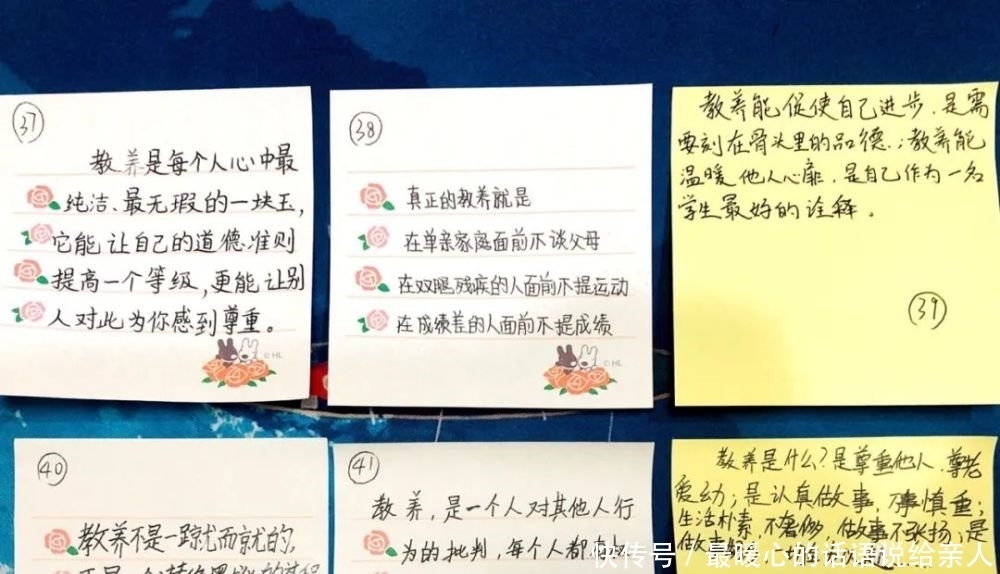 37
教养是每个人心中最
纯洁、最无瑕的一块玉,
它能让自己的道德准则
提高一个等级,更能让别
人对此为你感到尊重。
© HL
38
真正的教养就是
在单亲家庭面前不谈父母
在双腿残疾的人面前不提运动
在成绩差的人面前不提成绩
© HL
教养能促使自己进步,是需
要刻在骨头里的品德.;教养能
温暖他人心扉,是自己作为一名
学生最好的诠释。
39
40
教养不是一蹴而就的,
41
教养,是一个人对其他人行
为的批判,每个人都有
教养是什么?是尊重他人,尊老
爱幼;是认真做事,慎重;
生活朴素,不奢侈,做事不张扬;是
做事
快传号 / 最暖心的话语说给亲人